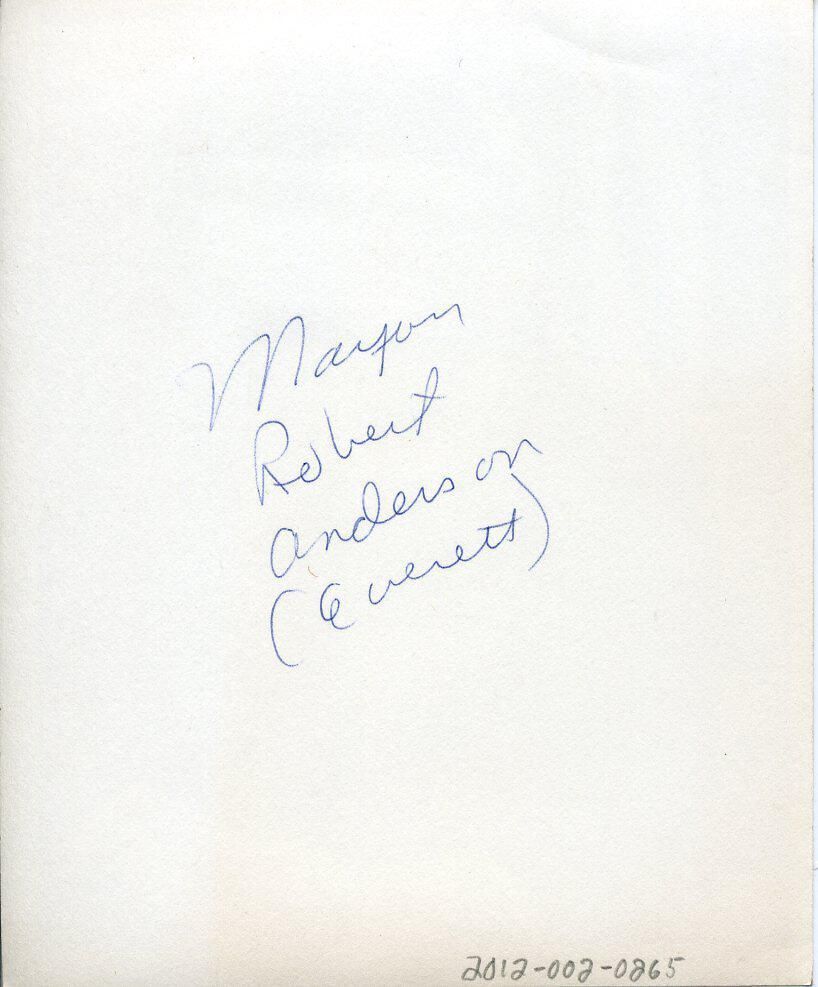 Mayor
Robert
Anderson
(Everett)
2012-002-0265